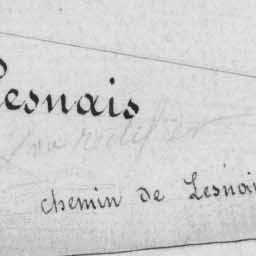 Lesnais
chemin de Lesnai